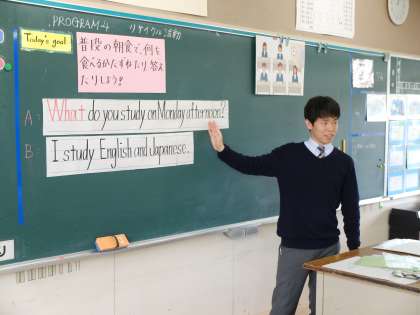 PROGRAM 4 リサイクル活動
Today's goal
普段の朝食で、何を
食べるかたずねたり、答え
たりしよう!!
A: What do you study on Monday afternoon?
B I study English and Japanese.